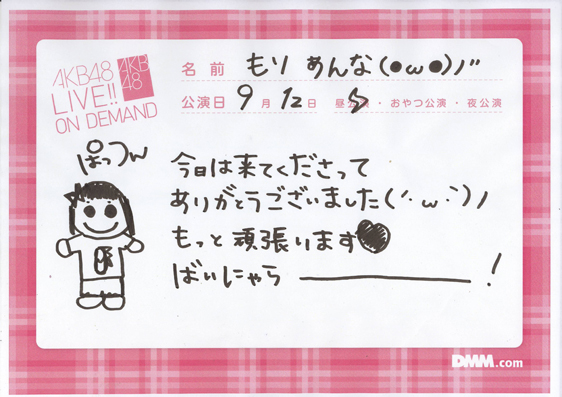 AKB48
LIVE!!
ON DEMAND
AKB
48
名前 もり めんな(●ω●)ノ"
公演日 9月12日 昼公演・おやつ公演・夜公演
ぱっつん
今日は来てくださって
ありがとうございました(´･ω･`)ノ
もっと頑張います♥
ばいにゃら――――――!
DMM.com